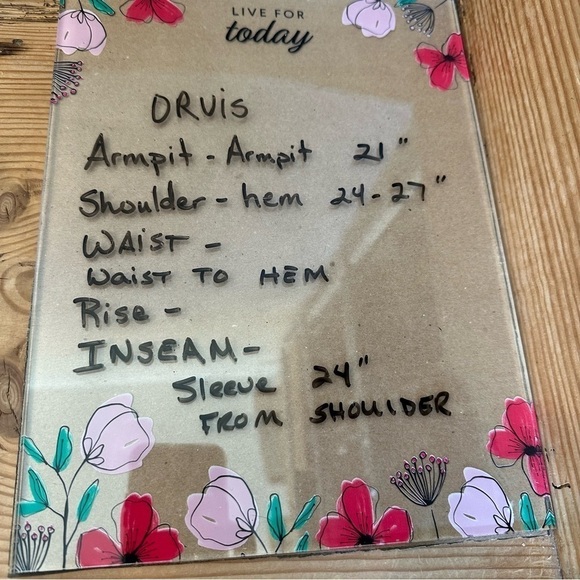 LIVE FOR
today
ORVIS
Armpit - Armpit 21"
Shoulder - hem 24-27"
WAIST -
Waist TO HEM
Rise -
INSEAM -
Sleeve 24"
FROM SHOULDER